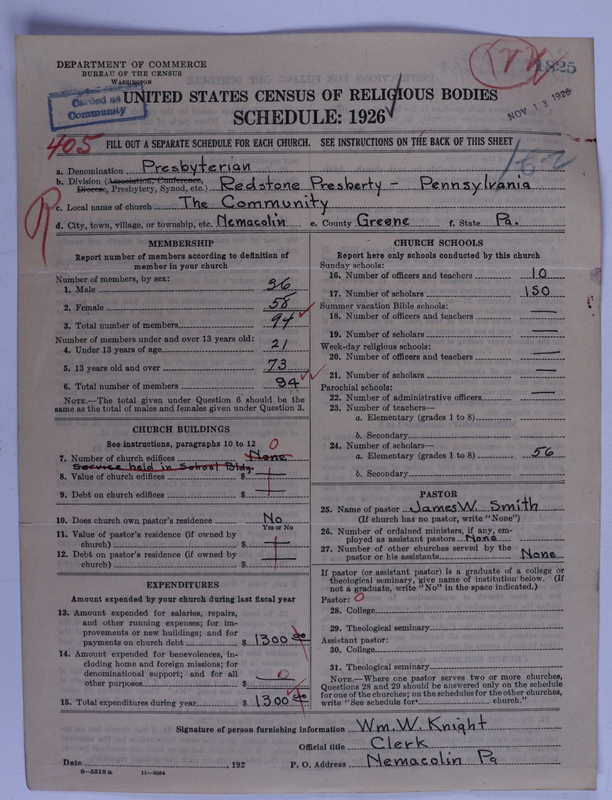 DEPARTMENT OF COMMERCE
BUREAU OF THE CENSUS
WASHINGTON
Carded as
Community
1825
NOV 13 1926
UNITED STATES CENSUS OF RELIGIOUS BODIES
SCHEDULE: 1926
405
FILL OUT A SEPARATE SCHEDULE FOR EACH CHURCH. SEE INSTRUCTIONS ON THE BACK OF THIS SHEET
162
R
a. Denomination Presbyterian
b. Division (Association, Conference, Diocese, Presbytery, Synod, etc.) Redstone Presberty - Pennsylvania
c. Local name of church The Community
d. City, town, village, or township, etc. Nemacolin e. County Greene f. State Pa.
MEMBERSHIP
Report number of members according to definition of
member in your church
Number of members, by sex:
1. Male 36
2. Female 58
3. Total number of members 94
Number of members under and over 13 years old:
4. Under 13 years of age 21
5. 13 years old and over 73
6. Total number of members 94
NOTE.—The total given under Question 6 should be
same as the total of males and females given under Question 3.
CHURCH BUILDINGS
See instructions, paragraphs 10 to 12
0
7. Number of church edifices None
Service held in School Bldg.
8. Value of church edifices $ —
9. Debt on church edifices $ —
10. Does church own pastor's residence No
Yes or No
11. Value of pastor's residence (if owned by
church) $ —
12. Debt on pastor's residence (if owned by
church) $ —
EXPENDITURES
Amount expended by your church during last fiscal year
13. Amount expended for salaries, repairs,
and other running expenses; for im-
provements or new buildings; and for
payments on church debt $ 1300 00
14. Amount expended for benevolences, in-
cluding home and foreign missions; for
denominational support; and for all
other purposes $ 0
15. Total expenditures during year $ 1300 00
CHURCH SCHOOLS
Report here only schools conducted by this church
Sunday schools:
16. Number of officers and teachers 10
17. Number of scholars 150
Summer vacation Bible schools:
18. Number of officers and teachers —
19. Number of scholars —
Week-day religious schools:
20. Number of officers and teachers —
21. Number of scholars —
Parochial schools:
22. Number of administrative officers —
23. Number of teachers—
a. Elementary (grades 1 to 8)
b. Secondary
24. Number of scholars—
a. Elementary (grades 1 to 8) 56
b. Secondary
PASTOR
25. Name of pastor James W. Smith
(If church has no pastor, write "None")
26. Number of ordained ministers, if any, em-
ployed as assistant pastors None
27. Number of other churches served by the
pastor or his assistants None
If pastor (or assistant pastor) is a graduate of a college or
theological seminary, give name of institution below. (If
not a graduate, write "No" in the space indicated.)
Pastor: 0
28. College
29. Theological seminary
Assistant pastor:
30. College
31. Theological seminary
NOTE.—Where one pastor serves two or more churches,
Questions 28 and 29 should be answered only on the schedule
for one of the churches; on the schedules for the other churches,
write "See schedule for church."
Signature of person furnishing information Wm. W. Knight
Official title Clerk
Date , 192 P. O. Address Nemacolin Pa
8—5518a 11—9034